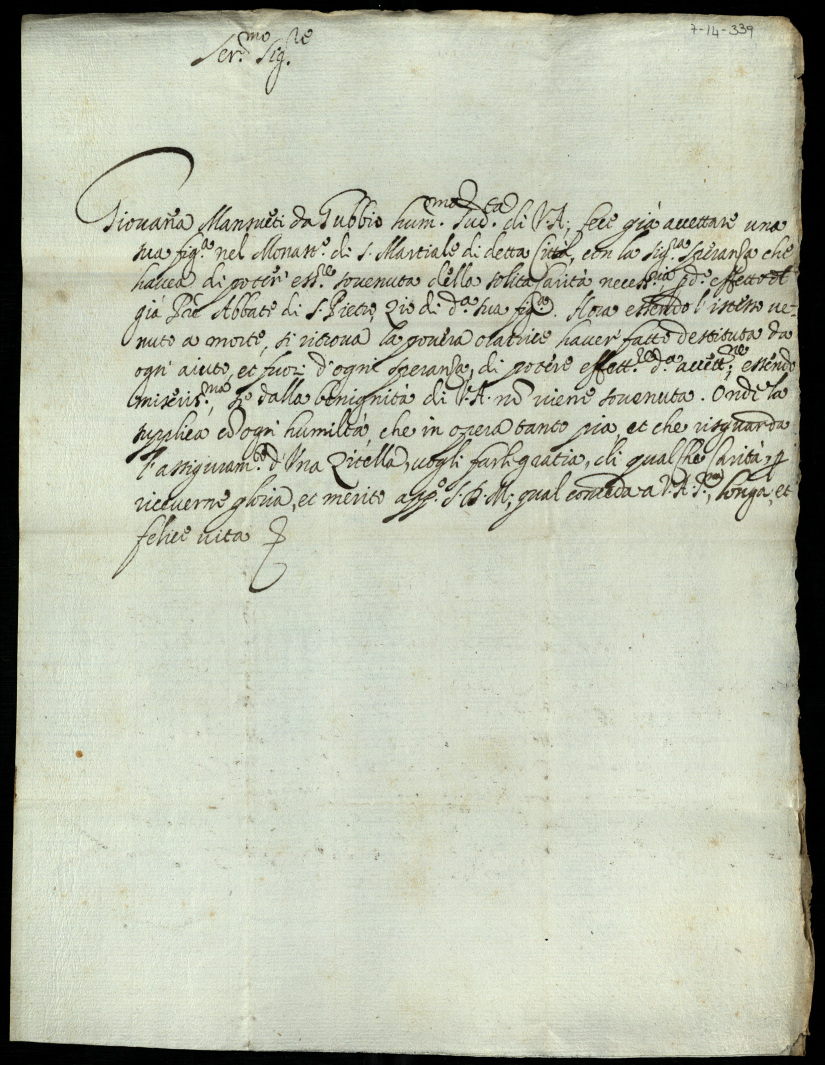 7-14-339
Ser.mo Sig.re
Giovan̄a Mansueti da Gubbio hum.ma Sud.ta di V. A; fece già accettare una
sua fig.a nel Monast.o di S. Martiale di detta Città, con la sig.ra speranza che
havea di poter ess.re sovenuta della solita Carità necess.ria p d.o effetto dal
già Abbate di S. Pietro Zio di d.a sua fig.a. Hora essendo l'istesso ve-
nuto a morte, si ritrova la povera oratrice haver fatto destituta da
ogni aiuto, et fuor d'ogni speranza, di potere effett.re d.a accett.ne, essendo
miseris.ma, se dalla benignità di V. A. nō viene sovenuta. Onde la
supplica cō ogni humiltà, che in opera tanto pia, et che risguarda
l'assicuram.o d'Una Zitella, vogli farli gratia, di qualche Carità, p
riceverne gloria, et merito app.o S. D. M; qual conceda a V. A. S.ma, longa, et
felice vita